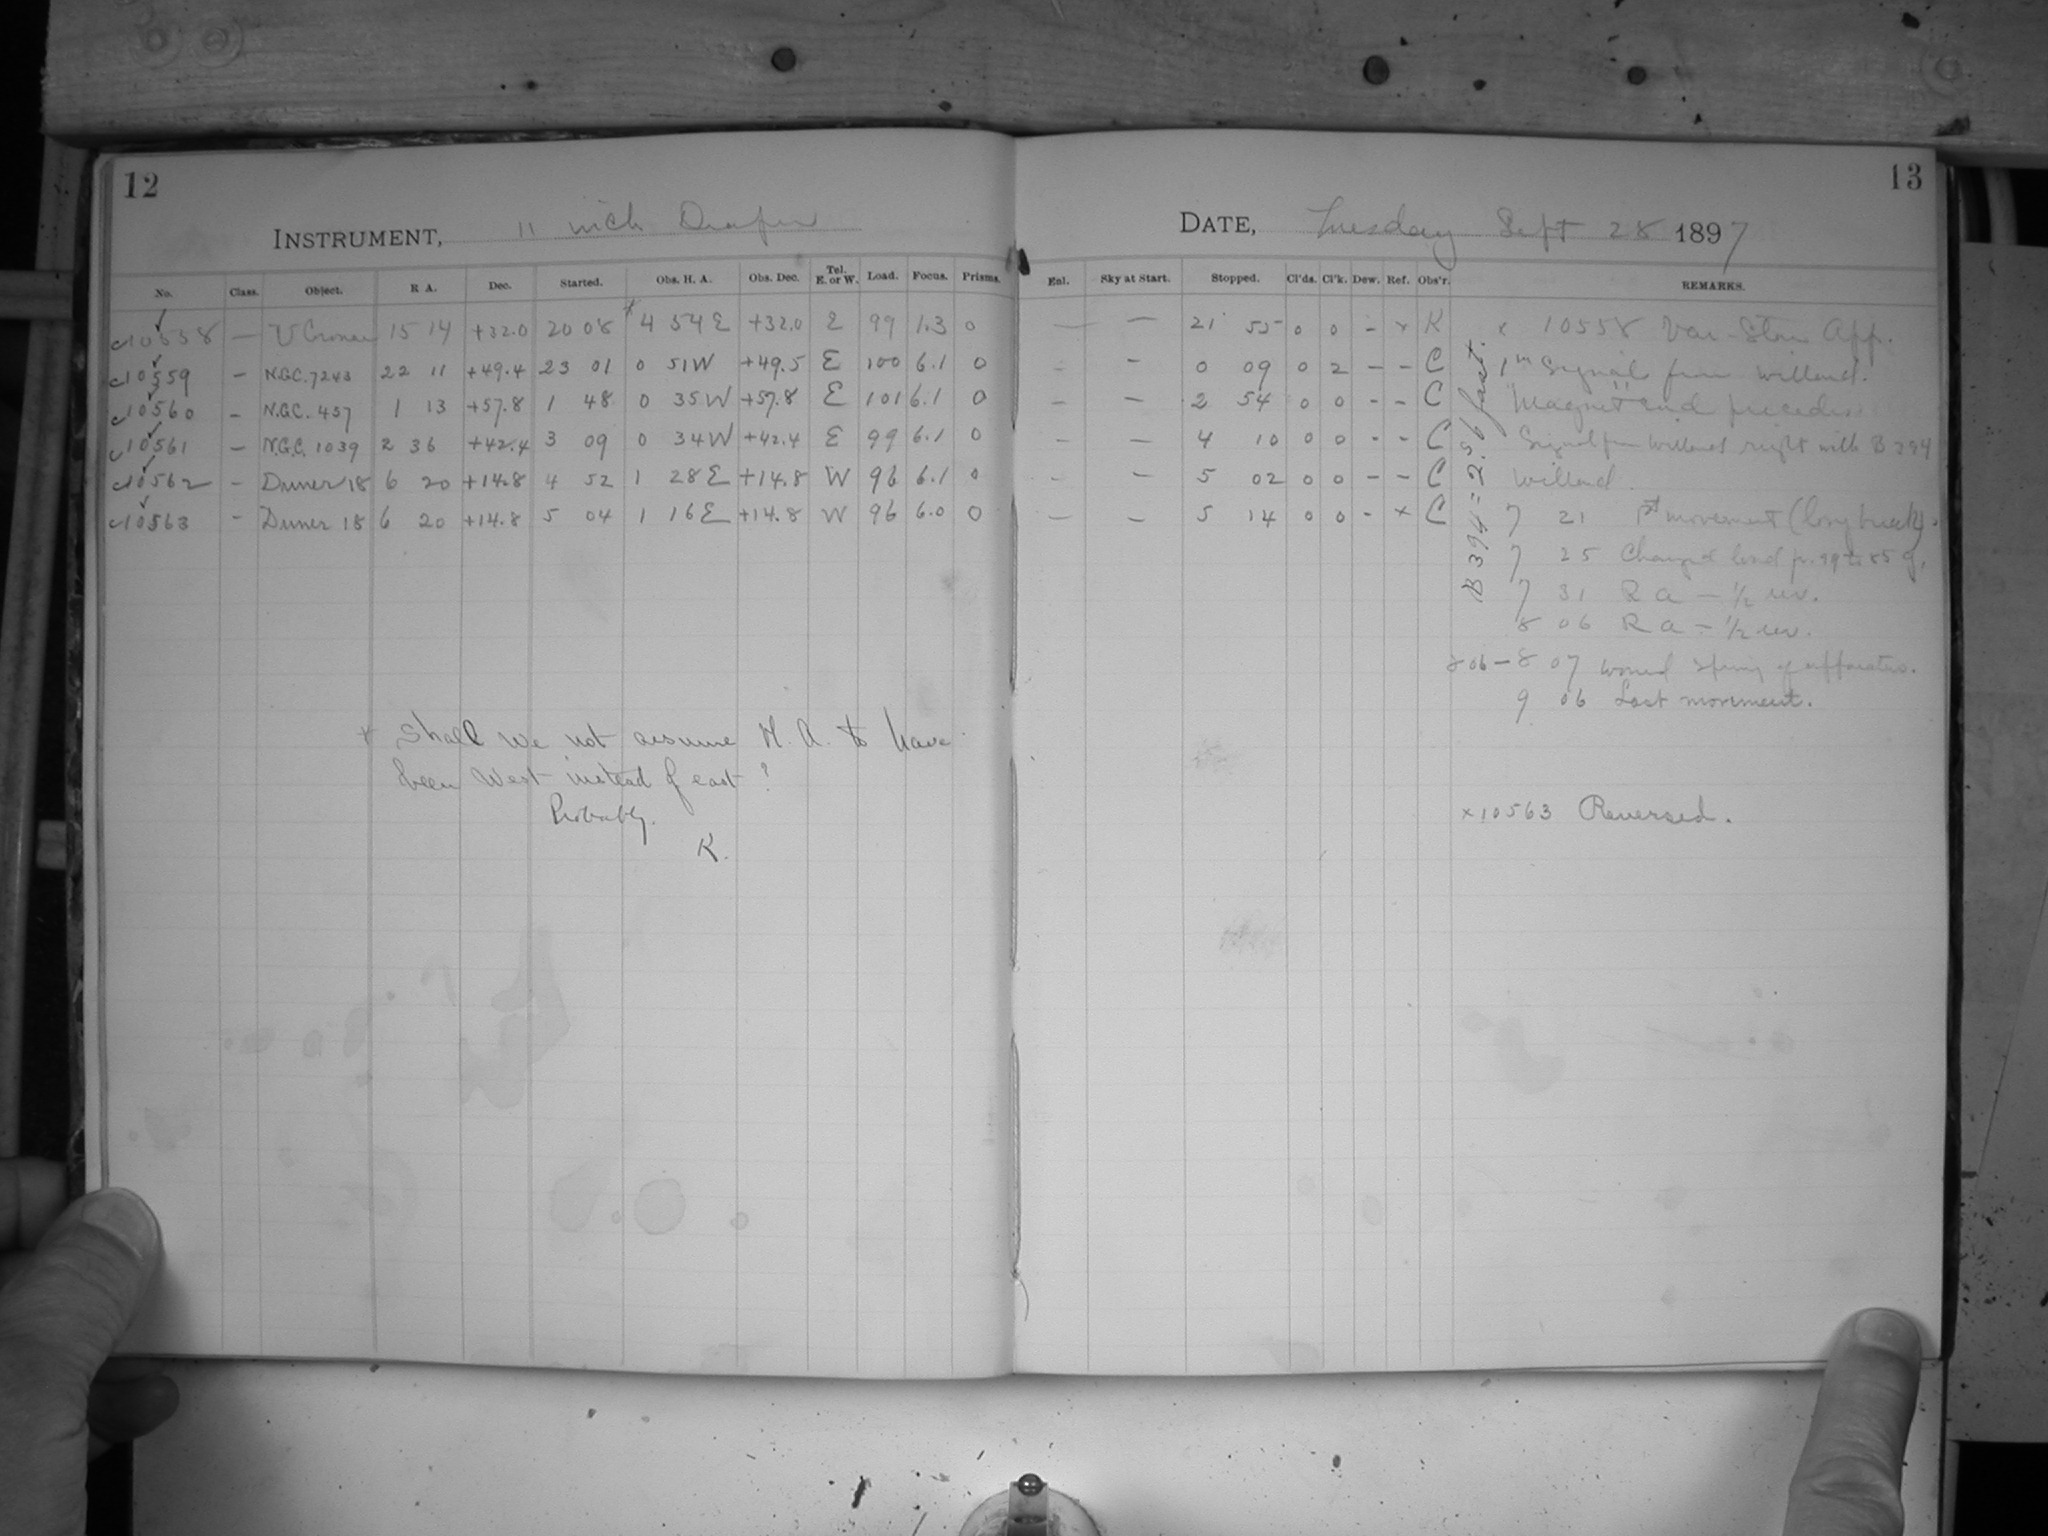 12
INSTRUMENT, 11 inch Draper
No. Class. Object. R A. Dec. Started. Obs. H. A. Obs. Dec. Tel. E. or W. Load. Focus. Prisms.
c10558 — U Coronae 15 14 +32.0 20 08 *4 54 E +32.0 E 99 1.3 0
c10559 — N.G.C. 7243 22 11 +49.4 23 01 0 51 W +49.5 E 100 6.1 0
c10560 — N.G.C. 457 1 13 +57.8 1 48 0 35 W +57.8 E 101 6.1 0
c10561 — N.G.C. 1039 2 36 +42.4 3 09 0 34 W +42.4 E 99 6.1 0
c10562 — Duner 18 6 20 +14.8 4 52 1 28 E +14.8 W 96 6.1 0
c10563 — Duner 18 6 20 +14.8 5 04 1 16 E +14.8 W 96 6.0 0
* Shall we not assume H. A. to have
been West instead of east?
Probably.
K.
13
DATE, Tuesday Sept 28 1897
Enl. Sky at Start. Stopped. Cl'ds. Cl'k. Dew. Ref. Obs'r. REMARKS.
— — 21 55 0 0 - x K x 10558 Var. Star App.
— — 0 09 0 2 - - C 1m Signal from Willard.
— — 2 54 0 0 - - C "Magnet" end precedes
— — 4 10 0 0 - - C Signal from Willard right with B 394
— — 5 02 0 0 - - C Willard
— — 5 14 0 0 - x C 7 21 1st movement (long break).
7 25 Changed load fr. 99 to 85
7 31 R a — 1/2 rev.
8 06 R a — 1/2 rev.
8 06 — 8 07 wound spring of apparatus.
9 06 Last movement.
B 394 = 2.5 fast.
x 10563 Reversed.